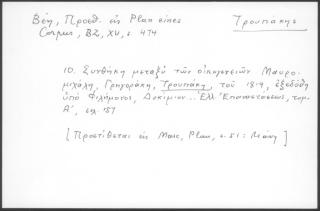 Βέη, Προσθ. εἰς Plan eines
Corpus, BZ, XV, σ. 474
Τρουπάκης
10. Συνθήκη μεταξὺ τῶν οἰκογενειῶν Μαυρο-
μιχάλη, Γρηγοράκη, Τρουπάκη, τοῦ ἐξεδόθη
ὑπὸ Φιλήμονος, Δοκίμιον... Ἑλλ. Ἐπαναστάσεως, τομ.
Α΄, σελ. 157
[Προστίθεται εἰς Marc, Plan, σ. 51: Μάνη]